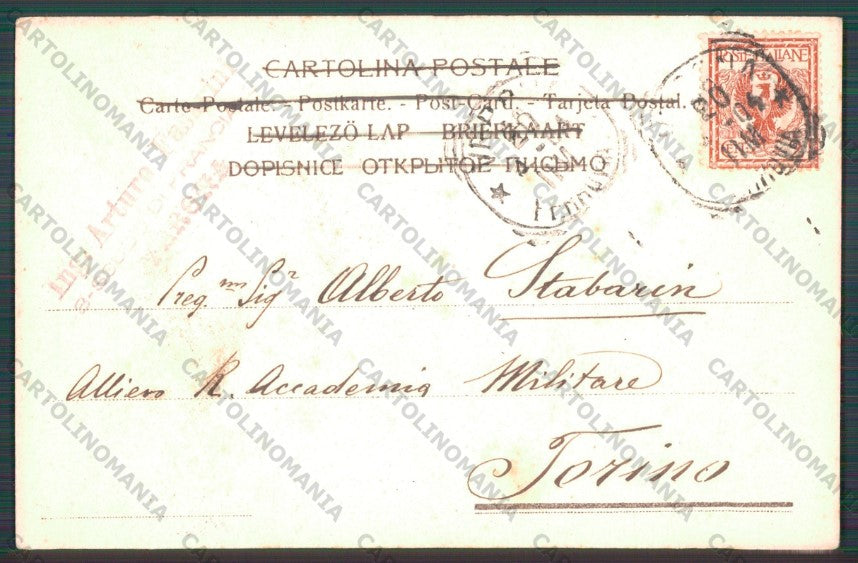 CARTOLINA POSTALE
Carte Postale. - Postkarte. - Post-Card. - Tarjeta Postal.
LEVELEZÖ-LAP - BRIEFKAART
DOPISNICE ОТКРЫТОЕ ПИСЬМО
POSTE ITALIANE
Ing. Arturo
Preg.mo Sigr Alberto Stabarin
Allievo R. Accademia Militare
Torino
CARTOLINOMANIA